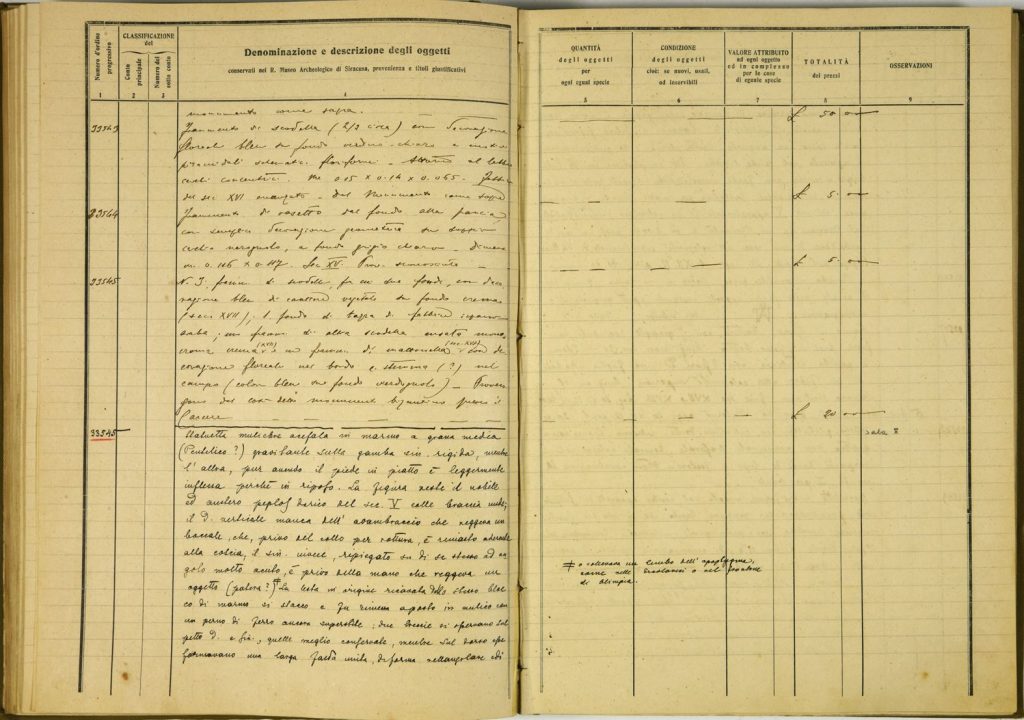 Numero d'ordine progressivo
CLASSIFICAZIONE del
Conto principale
Numero del sotto conto
Denominazione e descrizione degli oggetti
conservati nel R. Museo Archeologico di Siracusa, provenienza e titoli giustificativi
1 2 3 4
monumento come sopra.
33543 Frammento di scodella (2/3 circa) con decorazione
floreale bleu su fondo verdino chiaro a
floriformi
cerchi concentrici. m. 0.15 x 0.14 x 0.065.
del sec. XVI avanzato. Dal Monumento come sopra
33544 Frammento di vasetto dal fondo alla pancia,
con semplice decorazione geometrica su
nerognolo, a fondo grigio chiaro
m. 0.116 x 0.117. Sec. XV. Prov. sconosciuta
33545 N. 3 framm. di scodelle, fra cui un fondo, con deco
razione bleu di carattere vegetale su fondo crema
(secolo XVII); 1 fondo di tazza di fabbrica ispano
araba; un framm. di altra scodella mono
croma crema (XVII) e un framm. di mattonella (sec. XVII) con de
corazione floreale nel bordo e stemma (?) nel
campo (color bleu su fondo verdognolo) — Proven
gono dal così detto monumento bizantino presso il
Carcere
33545 Statuetta muliebre acefala in marmo a grana media
(Pentelico?) gravitante sulla gamba sin. rigida, mentre
l'altra, pur avendo il piede in piatto è leggermente
inflessa perchè in riposo. La figura veste il nobile
ed austero peplos dorico del sec. V colle braccia nude;
il d. verticale manca dell'avambraccio che reggeva un
boccale, che, privo del collo per rottura, è rimasto aderente
alla coscia, il sin. invece, ripiegato su di se stesso ad an
golo molto acuto, è privo della mano che reggeva un
oggetto (patera?) ‡ La testa in origine ricavata dallo stesso bloc
co di marmo si staccò e fu rimessa a posto in antico con
un perno di ferro ancora superstite; due treccie si osservano sul
petto d. e sin., quelle meglio conservate, mentre sul dorso esse
formavano una larga falda unita, di forma rettangolare ed
QUANTITÀ degli oggetti per ogni egual specie
CONDIZIONE degli oggetti cioè: se nuovi, usati, od inservibili
VALORE ATTRIBUITO ad ogni oggetto ed in complesso per le cose di eguale specie
TOTALITÀ dei prezzi
OSSERVAZIONI
5 6 7 8 9
£ 50
£ 5
£ 5
£ 20
sala
‡ o sollevava un lembo dell'apoptygma,
come nelle Ercolanesi o nel frontone
di Olimpia.